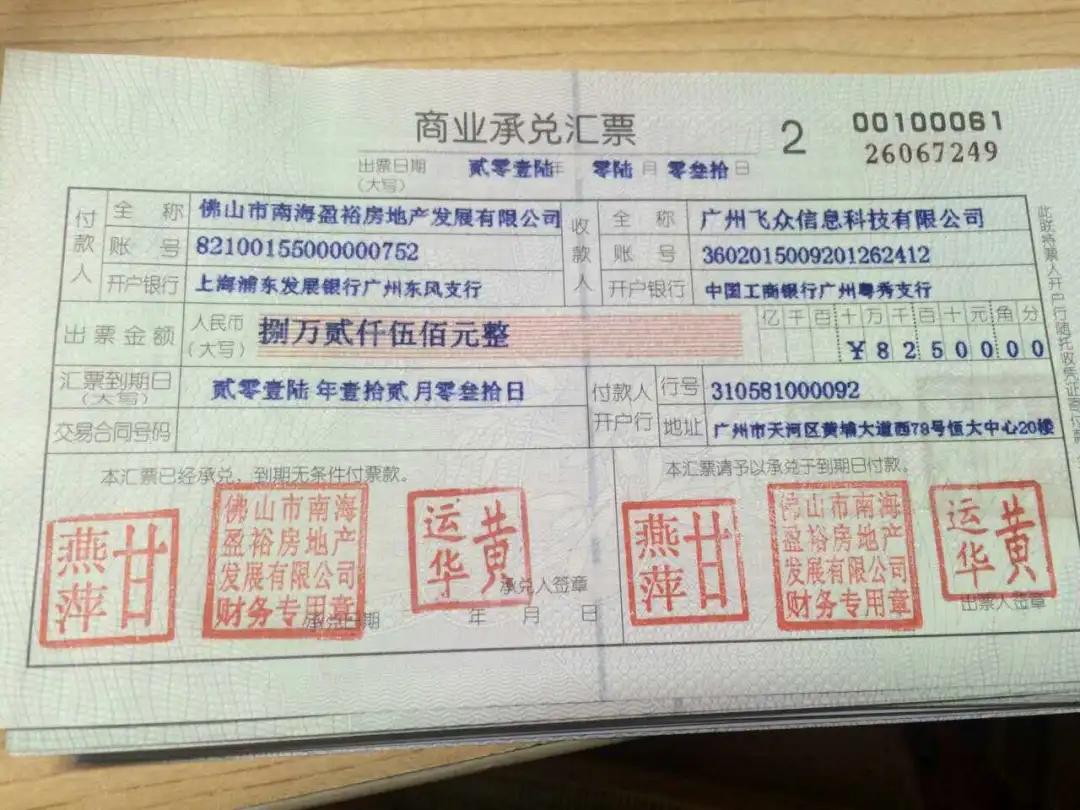 商业承兑汇票
2
00100061
26067249
出票日期
(大写)
贰零壹陆年 零陆月 零叁拾日
付款人
全称 佛山市南海盈裕房地产发展有限公司
账号 82100155000000752
开户银行 上海浦东发展银行广州东风支行
收款人
全称 广州飞众信息科技有限公司
账号 3602015009201262412
开户银行 中国工商银行广州粤秀支行
出票金额 人民币(大写) 捌万贰仟伍佰元整
亿千百十万千百十元角分
¥8250000
汇票到期日(大写) 贰零壹陆年壹拾贰月零叁拾日
付款人开户行
行号 310581000092
地址 广州市天河区黄埔大道西78号恒大中心20楼
交易合同号码
本汇票已经承兑,到期无条件付票款。
甘燕萍
佛山市南海
盈裕房地产
发展有限公司
财务专用章
黄运华
承兑人签章
承兑日期 年 月 日
本汇票请予以承兑于到期日付款。
甘燕萍
佛山市南海
盈裕房地产
发展有限公司
财务专用章
黄运华
出票人签章
此联持票人开户行随托收凭证寄付款